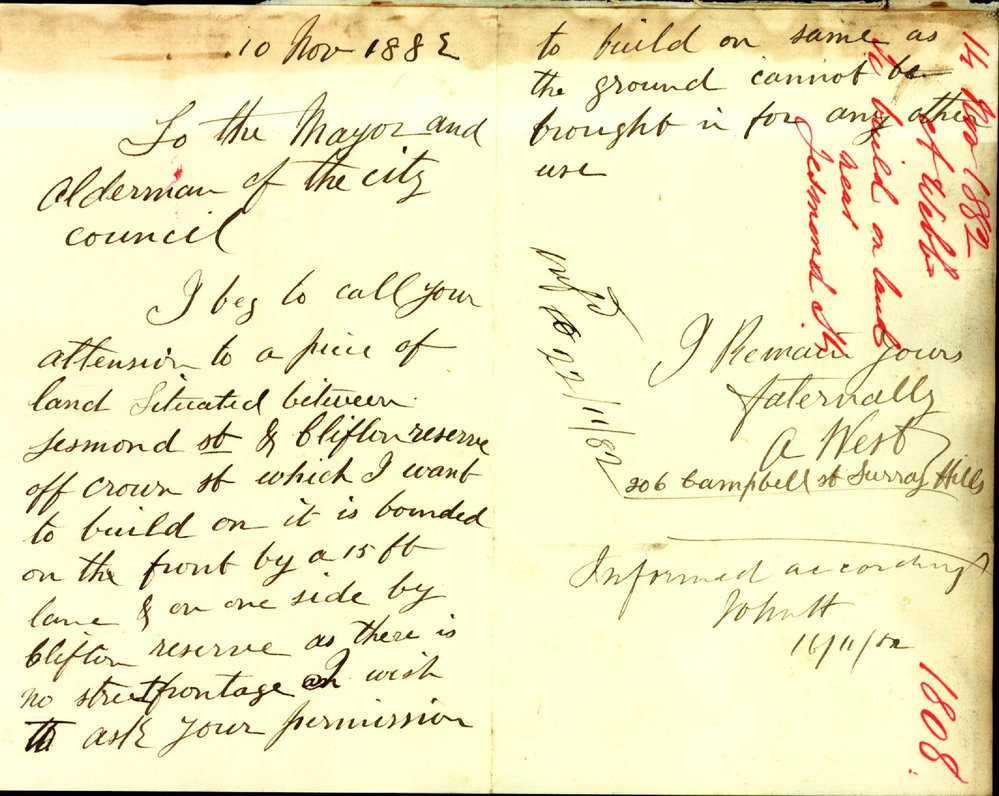 10 Nov 1882
To the Mayor and
Alderman of the city
council
I beg to call your
attension to a piece of
land Situated between
Jesmond st & Clifton reserve
off Crown st which I want
to build on it is bounded
on the front by a 15 ft
lane & on one side by
Clifton reserve as there is
no street frontage I wish
to ask your permission
to build on same as
the ground cannot be
brought in for any other
use
I Remain Yours
faternally
A West
306 Campbell st Surray Hills
Informed accordingly
16/11/82
22/11/82
14 Nov 1882
to build on land
near
Jesmond St
1808.